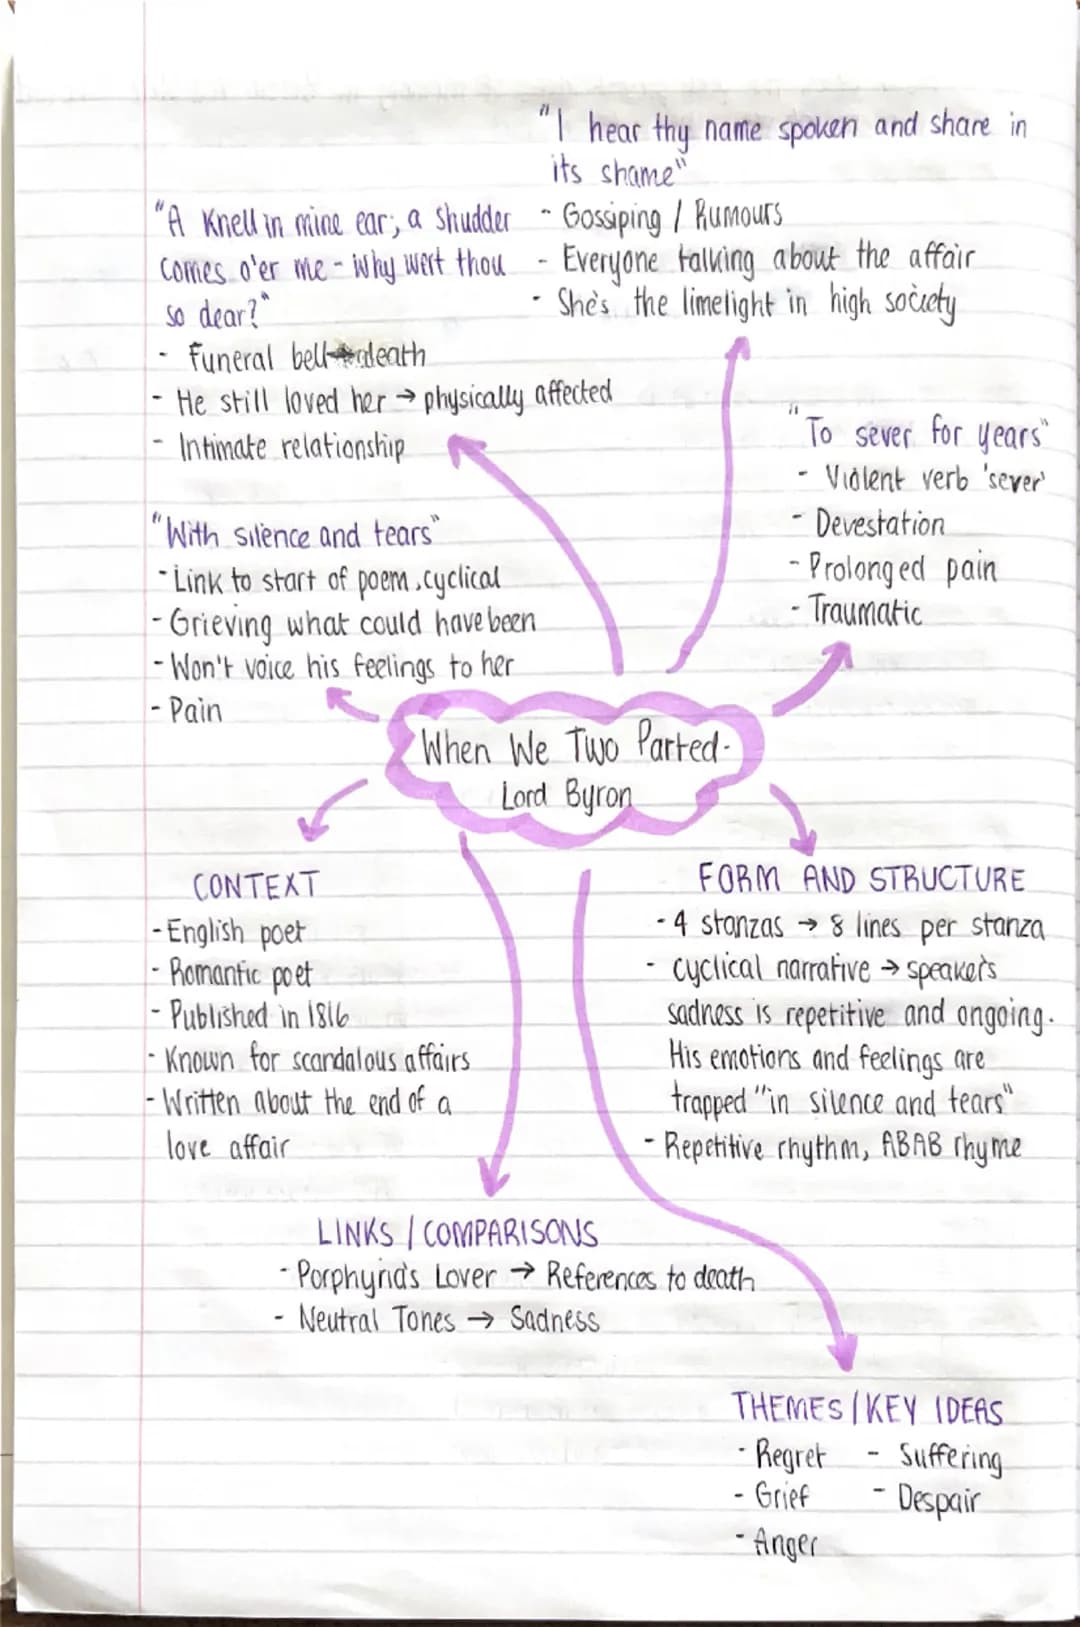 "I hear thy name spoken and share in
its shame"
- Gossiping / Rumours
- Everyone talking about the affair
- She's the limelight in high society
"A Knell in mine ear; a shudder
comes o'er me - why wert thou
so dear?"
- Funeral bell → death
- He still loved her → physically affected
- Intimate relationship
"To sever for years"
- Violent verb 'sever'
- Devestation
- Prolonged pain
- Traumatic
"With silence and tears"
- Link to start of poem, cyclical
- Grieving what could have been
- Won't voice his feelings to her
- Pain
When We Two Parted -
Lord Byron
CONTEXT
- English poet
- Romantic poet
- Published in 1816
- Known for scandalous affairs
- Written about the end of a
love affair
FORM AND STRUCTURE
- 4 stanzas → 8 lines per stanza
- cyclical narrative → speaker's
sadness is repetitive and ongoing.
His emotions and feelings are
trapped "in silence and tears"
- Repetitive rhythm, ABAB rhyme
LINKS / COMPARISONS
- Porphyria's Lover → References to death
- Neutral Tones → Sadness
THEMES / KEY IDEAS
- Regret - Suffering
- Grief - Despair
- Anger